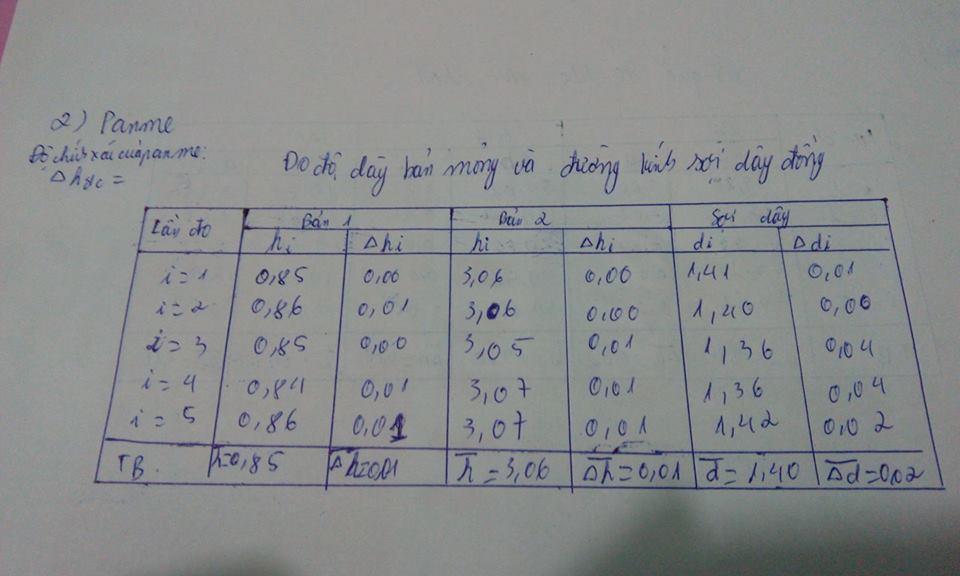 2) Panme
Độ chính xác của panme:
Δhdc =
Đo độ dày bản mỏng và đường kính sợi dây đồng
Lần đo Bản 1 Bản 2 Sợi dây
hi Δhi hi Δhi di Δdi
i=1 0,85 0,00 3,06 0,00 1,41 0,01
i=2 0,86 0,01 3,06 0,00 1,40 0,00
i=3 0,85 0,00 3,05 0,01 1,36 0,04
i=4 0,84 0,01 3,07 0,01 1,36 0,04
i=5 0,86 0,01 3,07 0,01 1,42 0,02
TB. h̅=0,85 Δh̅=0,01 h̅=3,06 Δh̅=0,01 d̅=1,40 Δd̅=0,02